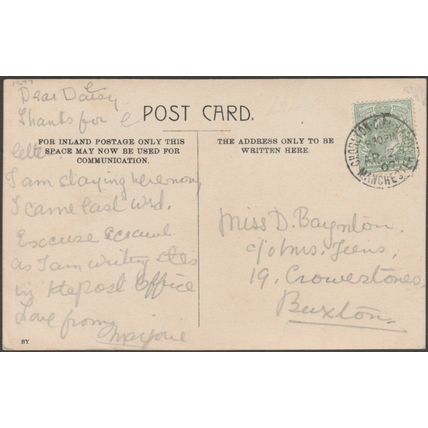 Dear Daisy
Thanks for
letter
I am staying here now
I came last Wed.
Excuse scrawl
as I am writing this
in the post Office
Love from
Marjorie
POST CARD.
FOR INLAND POSTAGE ONLY THIS
SPACE MAY NOW BE USED FOR
COMMUNICATION.
THE ADDRESS ONLY TO BE
WRITTEN HERE.
MANCHESTER
Miss D. Baynton.
c/o Mrs.
19. Crowestones,
Buxton.
BY